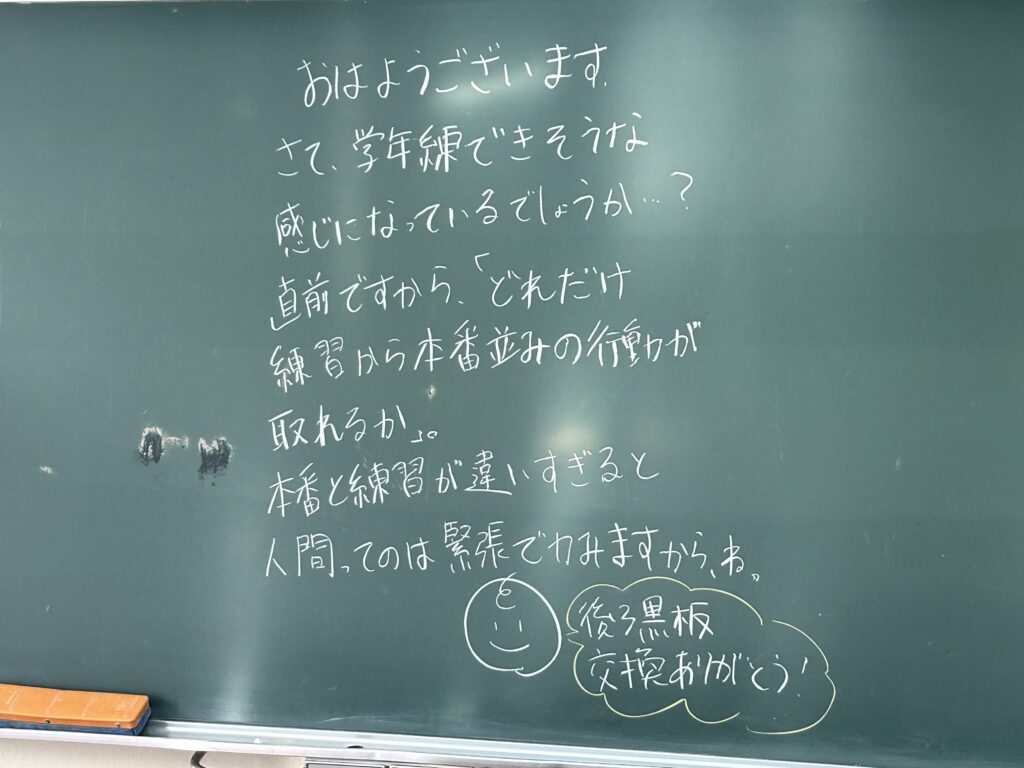 おはようございます。
さて、学年練できそうな
感じになっているでしょうか…?
直前ですから、「どれだけ
練習から本番並みの行動が
取れるか」。
本番と練習が違いすぎると
人間ってのは緊張で力みますから、ね。
後ろ黒板
交換ありがとう!